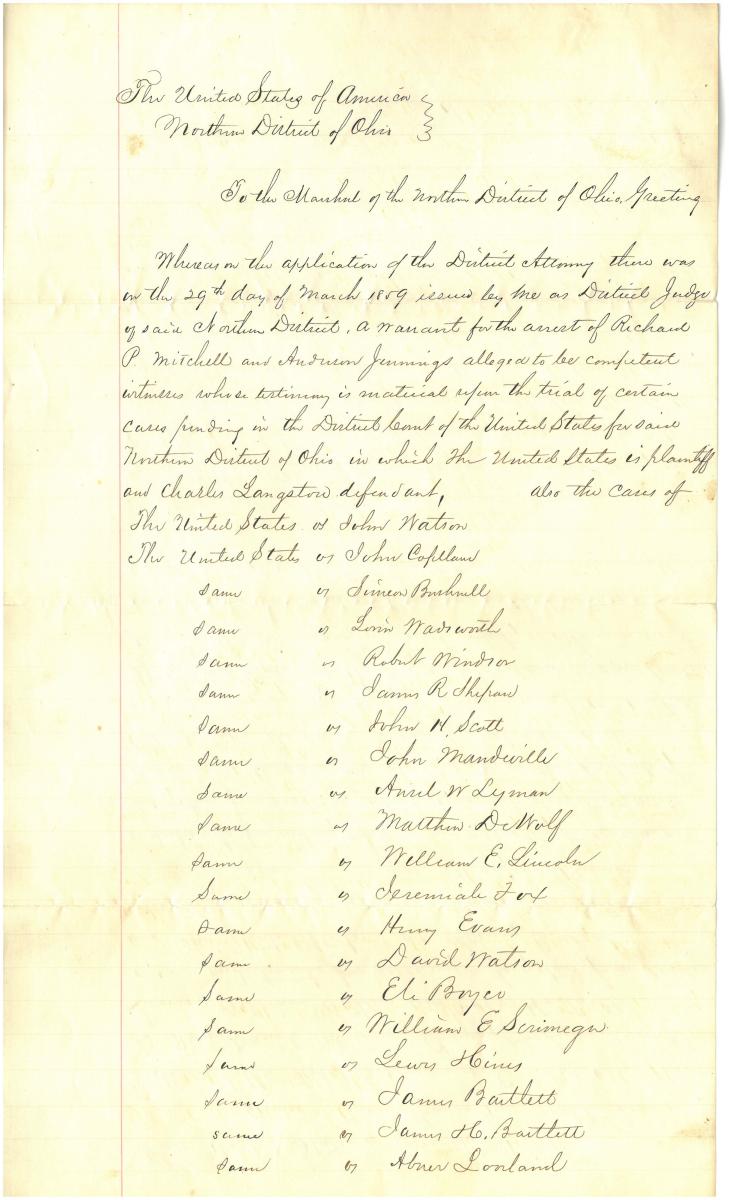 The United States of America
Northern District of Ohio
To the Marshal of the Northern District of Ohio, Greeting
Whereas on the application of the District Attorney there was
on the 29th day of March 1859 issued by me as District Judge
of said Northern District, a warrant for the arrest of Richard
P. Mitchell and Anderson Jennings alleged to be competent
witnesses whose testimony is material upon the trial of certain
cases pending in the District Court of the United States for said
Northern District of Ohio in which The United States is plaintiff
and Charles Langston defendant, also the cases of
The United States vs John Watson
The United States vs John Copeland
Same vs Simeon Bushnell
Same vs Lorin Wadsworth
Same vs Robert Windsor
Same vs James R Shepard
Same vs John H. Scott
Same vs John Mandeville
Same vs Ansel W Lyman
Same vs Matthew DeWolf
Same vs William E. Lincoln
Same vs Jeremiah Fox
Same vs Henry Evans
Same vs David Watson
Same vs Eli Boyce
Same vs William E
Same vs Lewis Hines
Same vs James Bartlett
same vs James H. Bartlett
Same vs Abner Loveland